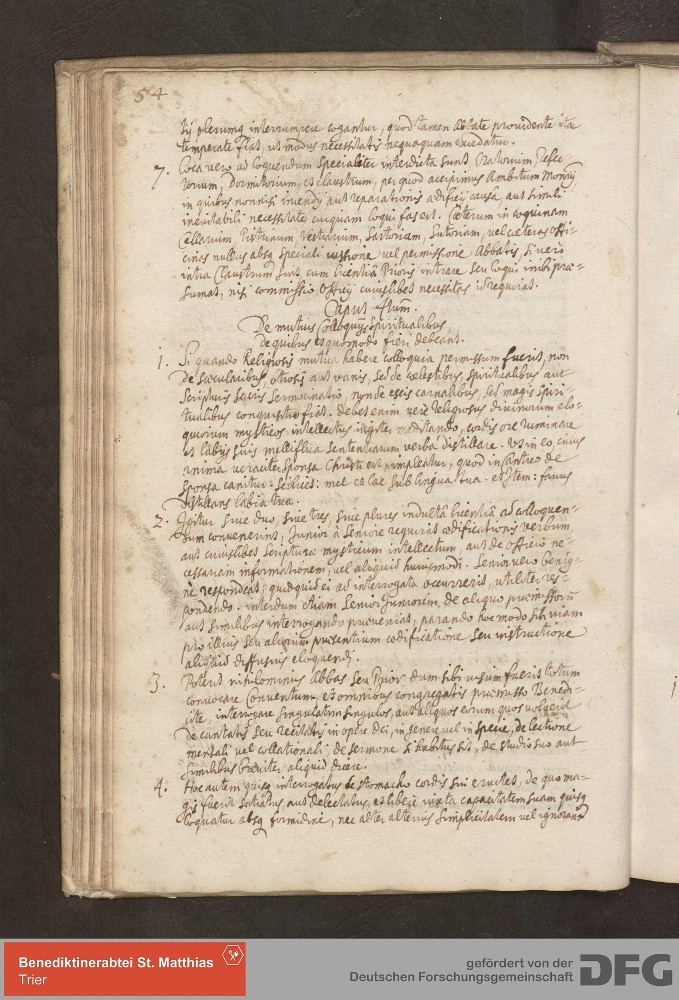 54
tij plerumq interrumpere cogantur, quod tamen Abbate providente ita
temperate fiat, ut modus necessitatis nequaquam excedatur.
7. Loca vero ad loquendum specialiter interdicta sunt Oratorium, Refec-
torium, Dormitorium, et Claustrum, per quod accipimus Ambitum Monrij,
in quibus nonnisi incendij aut reparationis aedificij causa, aut simili
inevitabili necessitate cuiquam loqui fas est. Caeterum in coquinam
Cellarium, Pistrinum, Vestiarium, Sartoriam, Sutoriam, vel caeteras offi-
cinas nullus absq speciali iussione vel permissione Abbatis, si vero
intra Claustrum sint, cum licentia Prioris intrare seu loqui inibi prae-
sumat, nisi commissio officij cuiuslibet necessitas id requirat.
Caput 4tum.
De mutuis Colloquijs Spiritualibus,
de quibus et quomodo fieri debeant.
1. Si quando Religiosis mutua habere colloquia permissum fuerit, non
de saecularibus, otiosis aut vanis, sed de caelestibus, spiritalibus aut
scripturis sacris sermocinatio, non de escis carnalibus, sed magis spiri-
tualibus conquisitio fiat. debet enim vere Religiosus divinorum elo-
quiorum mysticos intellectus iugiter meditando, cordis ore ruminare
et labijs suis melliflua sententiarum verba distillare. ut in eo, cuius
anima veraciter sponsa Christi est, impleatur, quod in Cantico de
sponsa canitur: scilicet: mel et lac sub lingua tua. et item: favus
distillans labia tua.
2. Igitur sive duo, sive tres, sive plures indulta licentia ad colloquen-
dum convenerint, Junior à Seniore requirat aedificationis verbum,
aut cuiuslibet scripturae mysticum intellectum, aut de officio ne-
cessariam informationem, vel aliquid huiusmodi. Senior vero benig-
nè respondeat, quidquid ei ad interrogata occurrerit, utiliter res-
pondendo. interdum etiam Senior Juniorem, de aliquo praemissorum
aut similibus interrogando praeveniat, parando hoc modo sibi viam
pro illius seu aliorum praesentium aedificatione seu instructione
aliquid diffusius eloquendi.
3. Poterit nihilominus Abbas seu Prior dum sibi visum fuerit totum
convocare Conventum, et omnibus congregatis praemisso Benedi-
cite, interrogare singulatim singulos, aut aliquos eorum quos voluerit
de cantatis seu recitatis in opere Dei, in genere vel in specie, de lectione
mensali vel collationali, de sermone si habitus sit, de studio suo aut
similibus breviter aliquid dicere.
4. Hoc autem quisq interrogatus de stomacho cordis sui eructet, de quo ma-
gis fuerit satiatus aut delectatus, et liberè iuxta capacitatem suam quisq
loquatur absq formidine, nec alter alterius simplicitatem vel ignoran-
Benediktinerabtei St. Matthias
Trier
gefördert von der
Deutschen Forschungsgemeinschaft
DFG